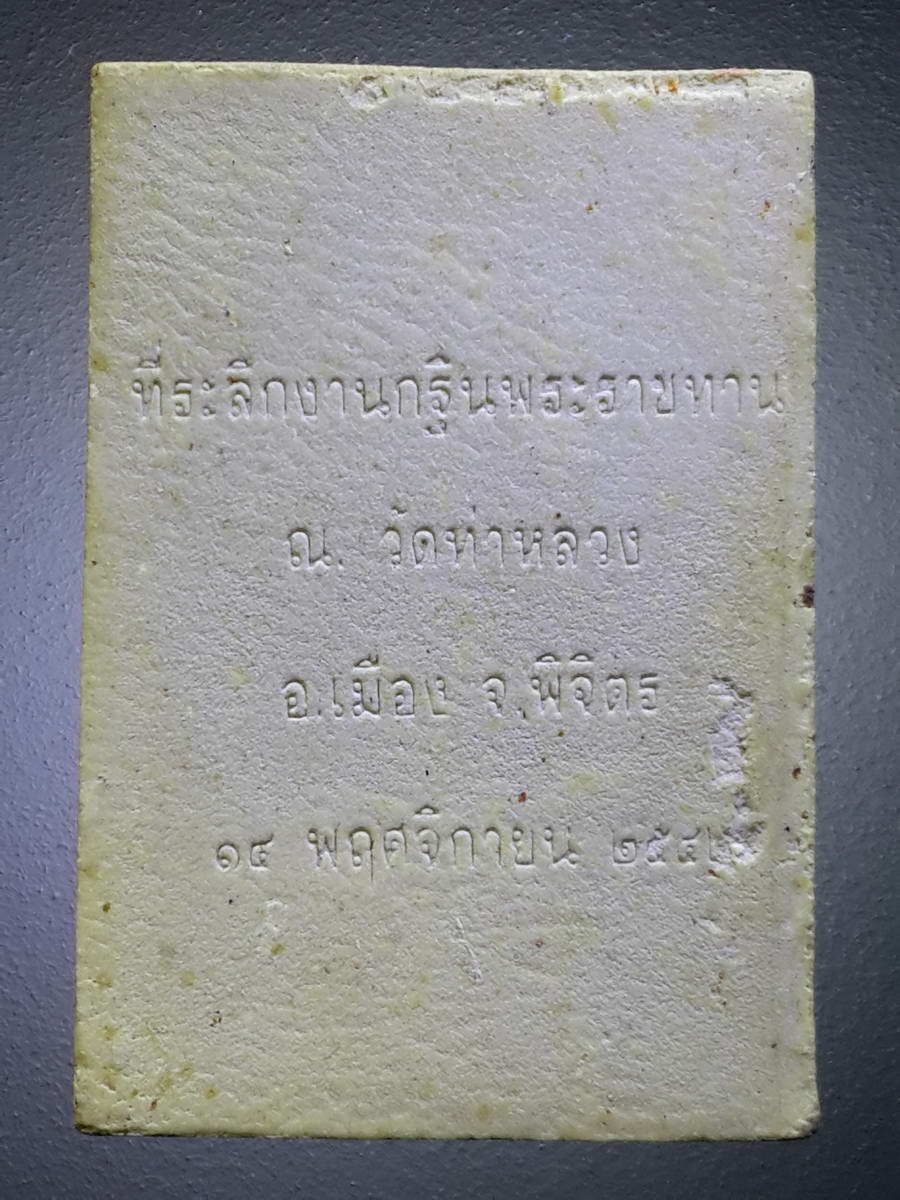 ที่ระลึกงานกฐินพระราชทาน
ณ. วัดท่าหลวง
อ.เมือง จ.พิจิตร
๑๔ พฤศจิกายน